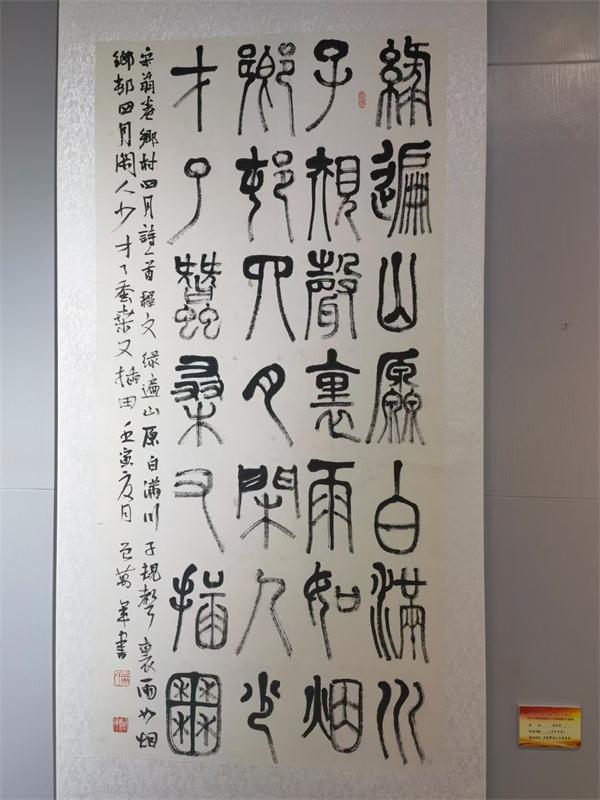 綠遍山原白滿川
子規聲裏雨如烟
鄉邨四月閑人少
才了蠶桑又插田
宋翁卷鄉村四月詩一首釋文 綠遍山原白滿川 子規聲裏雨如烟
鄉邨四月閑人少 才了蚕桑又插田 壬寅夏月